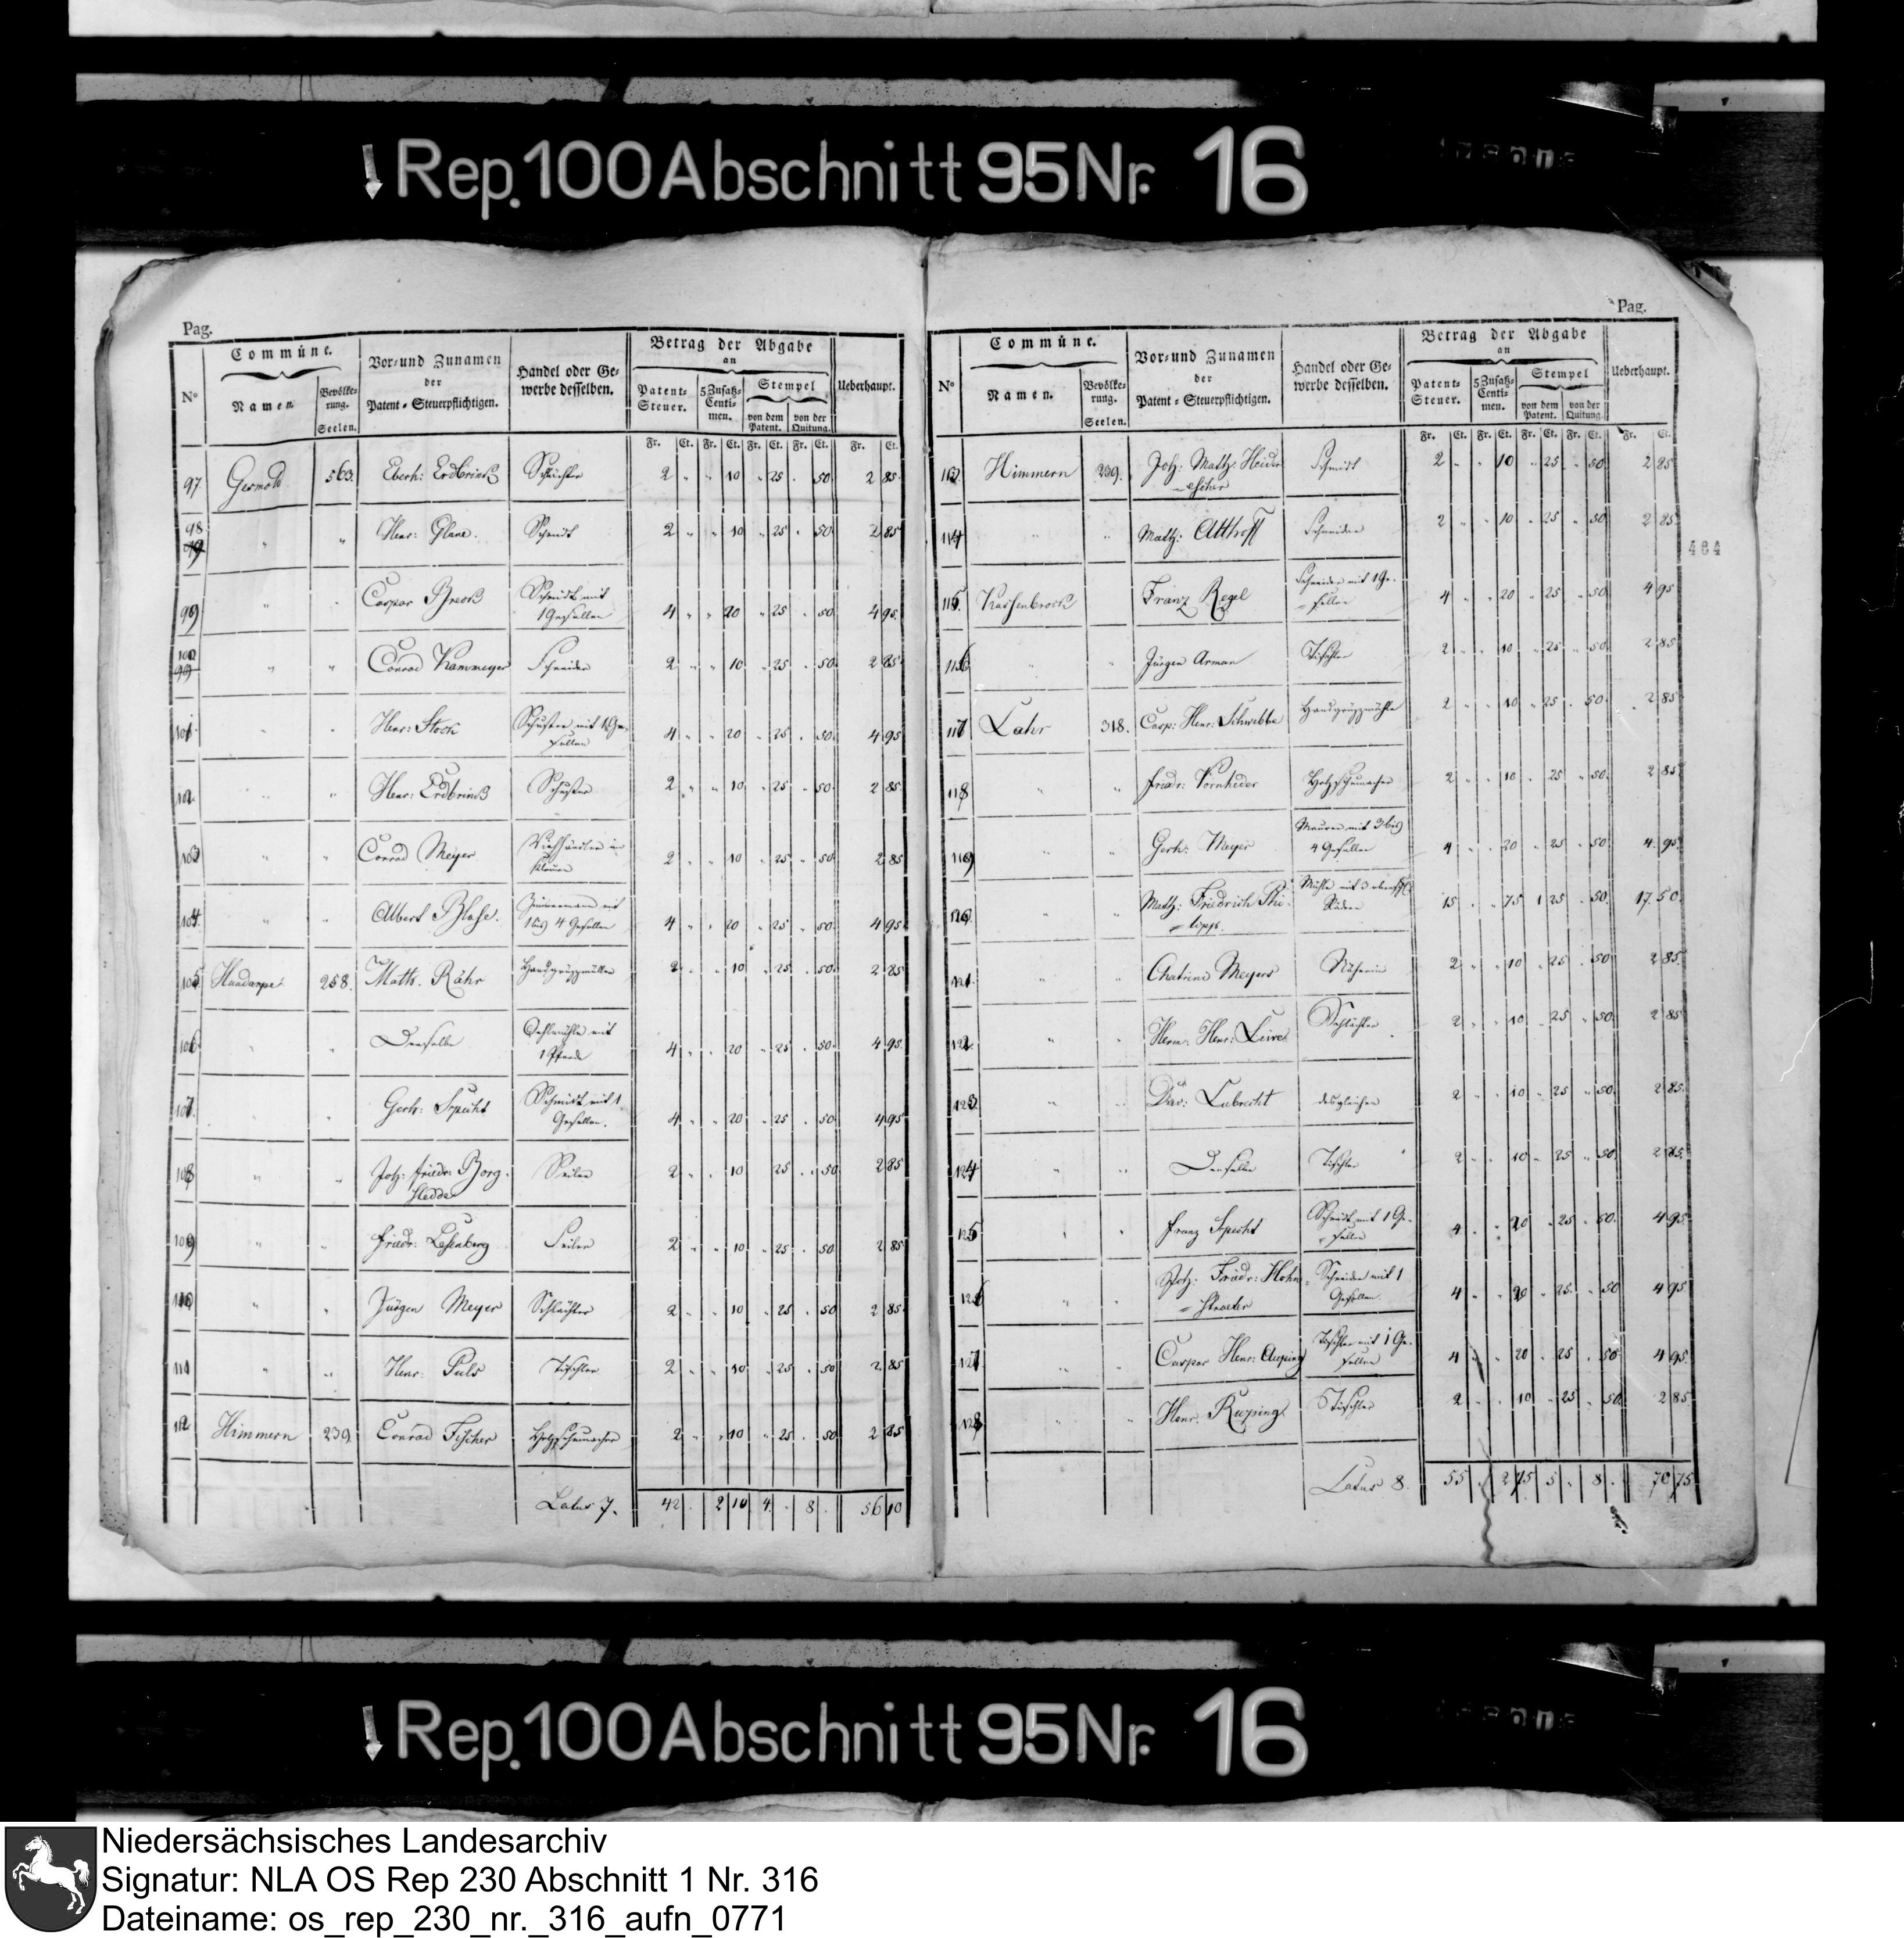 Rep. 100 Abschnitt 95 Nr. 16
Pag.
Commüne.
Betrag der Abgabe
an
N° Namen. Bevölke-rung. Seelen. Vor- und Zunamen der Patent-Steuerpflichtigen. Handel oder Ge-werbe desselben. Patent-Steuer. 5 Zusatz-Centi-men. Stempel von dem Patent. von der Quitung. Ueberhaupt.
Fr. Ct. Fr. Ct. Fr. Ct. Fr. Ct. Fr. Ct.
97 Gesmold 563. Eberh: Erdbrink Schlächter 2 " " 10 " 25 " 50 2 85
98 " " Henr: Glane. Schmidt 2 " " 10 " 25 " 50 2 85
99 " " Caspar Brecht Schmidt mit
1 Gesellen 4 " " 20 " 25 " 50 4 95
100 " " Conrad Kammeyer Schneider 2 " " 10 " 25 " 50 2 85
101 " " Henr: Stock Schuster mit 1 Ge-
sellen 4 " " 20 " 25 " 50 4 95
102 " " Henr: Erdbrink Schuster 2 " " 10 " 25 " 50 2 85
103 " " Conrad Meyer Viehhändler im
kleinen 2 " " 10 " 25 " 50 2 85
104 " " Albert Blase. Zimmermann mit
1 bis 4 Gesellen 4 " " 20 " 25 " 50 4 95
105 Handarpe 258. Math. Rähr Handgrüzmüller 2 " " 10 " 25 " 50 2 85
106 " " Derselbe Oehlmühle mit
1 Pferde 4 " " 20 " 25 " 50 4 95
107. " " Gerh: Specht Schmidt mit 1
Gesellen. 4 " " 20 " 25 " 50 4 95
108 " " Joh: Friedr: Borg-
stedde Seiler 2 " " 10 " 25 " 50 2 85
109 " " Friedr: Lesenberg Seiler 2 " " 10 " 25 " 50 2 85
110 " " Jürgen Meyer Schlächter 2 " " 10 " 25 " 50 2 85
111 " " Henr: Puls Tischler 2 " " 10 " 25 " 50 2 85
112 Himmern 239 Conrad Fischer Holzschumacher 2 " " 10 " 25 " 50 2 85
Latus 7. 42 . 2 10 4 . 8 . 56 10
Pag.
Commüne.
Betrag der Abgabe
an
N° Namen. Bevölke-rung. Seelen. Vor- und Zunamen der Patent-Steuerpflichtigen. Handel oder Ge-werbe desselben. Patent-Steuer. 5 Zusatz-Centi-men. Stempel von dem Patent. von der Quitung. Ueberhaupt.
Fr. Ct. Fr. Ct. Fr. Ct. Fr. Ct. Fr. Ct.
113. Himmern 239. Joh: Math: Heide- Schmidt 2 " " 10 " 25 " 50 2 85
114 " " Math: Althoff Schneider 2 " " 10 " 25 " 50 2 85
464
115. Kassenbrock Franz Regel Schneider mit 1 Ge-
sellen 4 " " 20 " 25 " 50 4 95
116 " " Jürgen Arman Tischler 2 " " 10 " 25 " 50 2 85
117 Lahr 318. Casp: Henr: Schwebbe Handgrüzmühle 2 " " 10 " 25 " 50 2 85
118 " " Friedr: Vornheder Holzschumacher 2 " " 10 " 25 " 50 2 85
119 " " Gerh: Meyer Maurer mit 3 bis
4 Gesellen 4 " " 20 " 25 " 50 4 95
120. " " Math: Friedrich Phi-
lipps. Mühle mit 3 obersch. Räder 15 " " 75 1 25 " 50 17 50
121. " " Chatrine Meyers Näherin 2 " " 10 " 25 " 50 2 85
122. " " Herm: Henr: Schlächter 2 " " 10 " 25 " 50 2 85
123. " " Dav: Lubrecht desgleichen 2 " " 10 " 25 " 50 2 85
124 " " Derselbe Tischler 2 " " 10 " 25 " 50 2 85
125 " " Franz Specht Schmidt mit 1 Ge-
sellen 4 " " 20 " 25 " 50 4 95
126 " " Joh: Friedr: Hohn-
straeter Schneider mit 1
Gesellen. 4 " " 20 " 25 " 50 4 95
127. " " Caspar Henr: Auping Tischler mit 1 Ge-
sellen 4 " " 20 " 25 " 50 4 95
128 " " Henr: Ruping Tischler 2 " " 10 " 25 " 50 2 85
Latus 8. 55 . 2 75 5 . 8 . 70 75
Rep. 100 Abschnitt 95 Nr. 16
Niedersächsisches Landesarchiv
Signatur: NLA OS Rep 230 Abschnitt 1 Nr. 316
Dateiname: os_rep_230_nr._316_aufn_0771